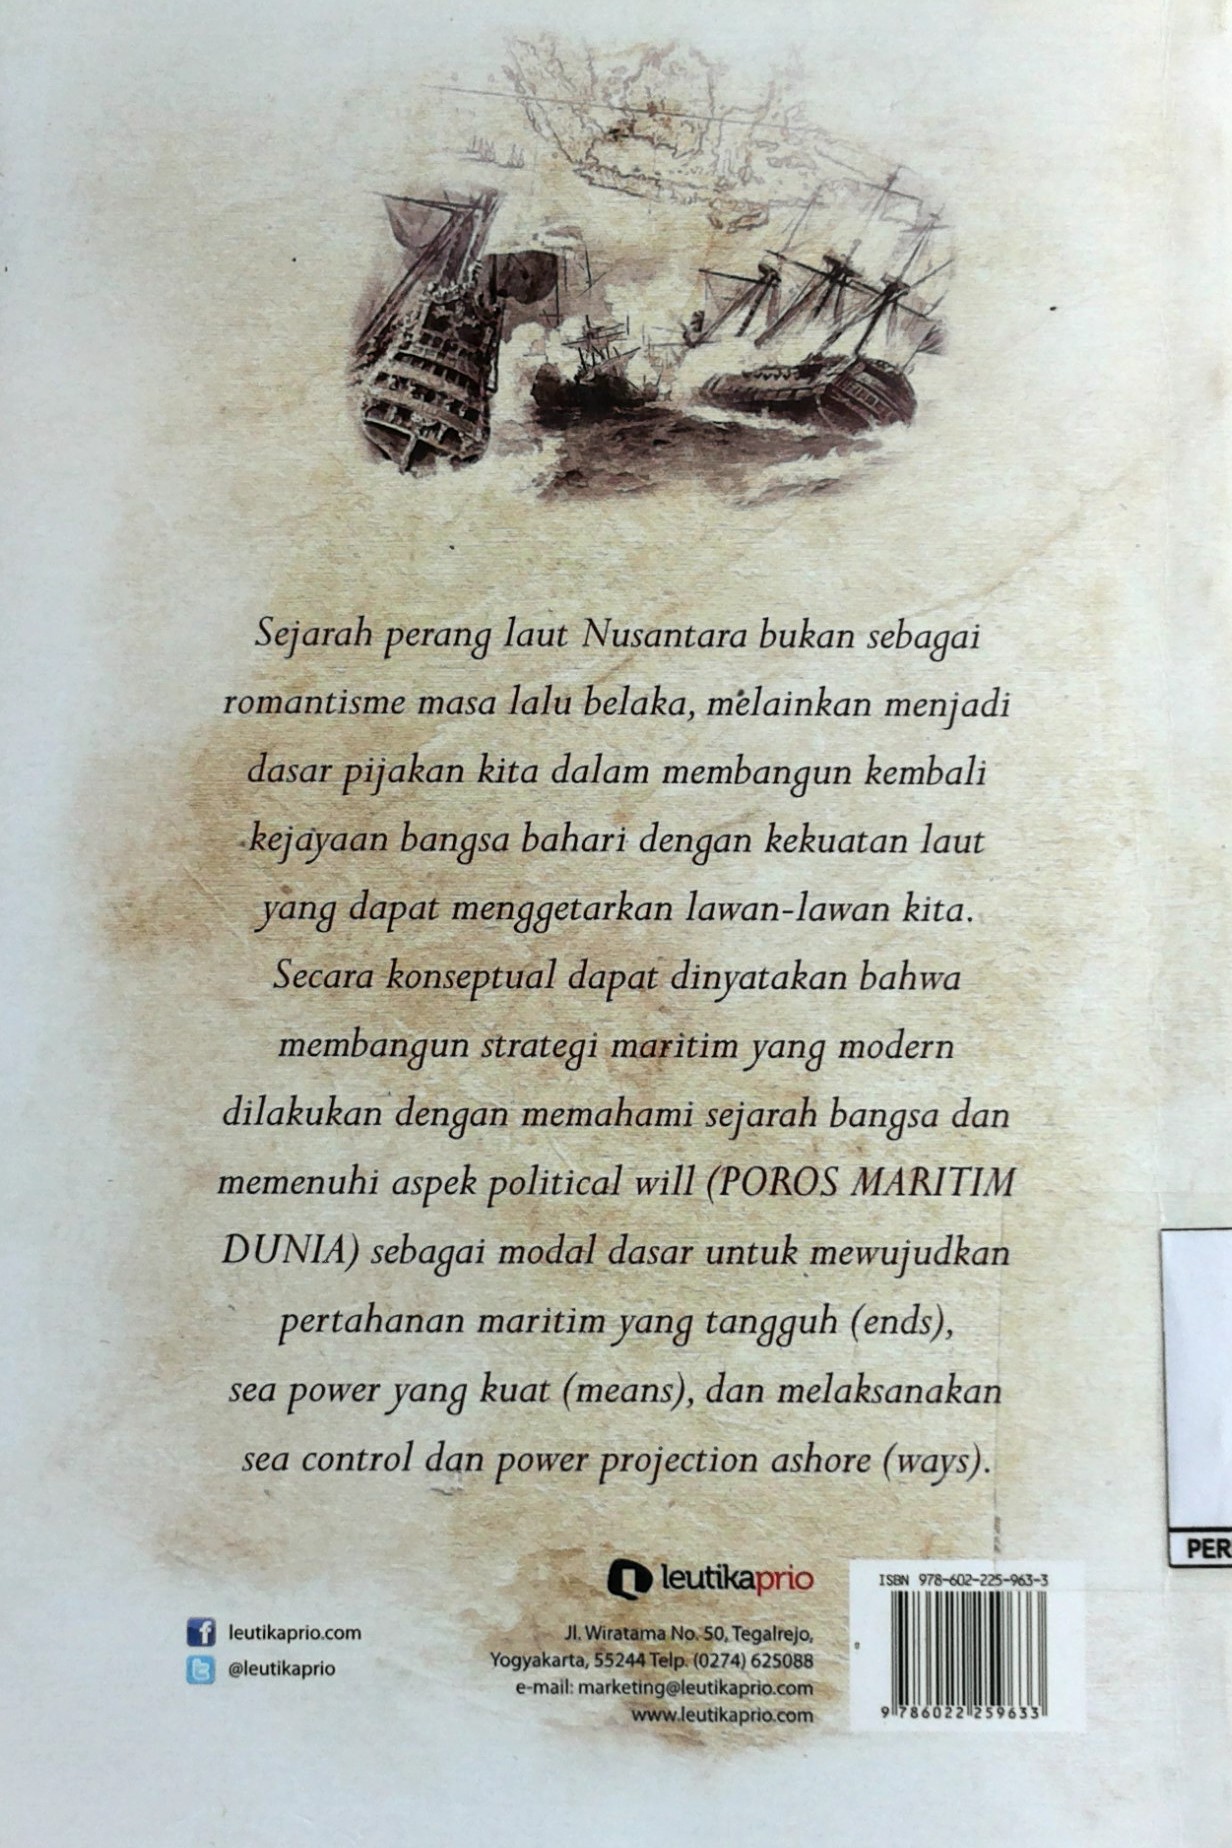 Sejarah perang laut Nusantara bukan sebagai
romantisme masa lalu belaka, melainkan menjadi
dasar pijakan kita dalam membangun kembali
kejayaan bangsa bahari dengan kekuatan laut
yang dapat menggetarkan lawan-lawan kita.
Secara konseptual dapat dinyatakan bahwa
membangun strategi maritim yang modern
dilakukan dengan memahami sejarah bangsa dan
memenuhi aspek political will (POROS MARITIM
DUNIA) sebagai modal dasar untuk mewujudkan
pertahanan maritim yang tangguh (ends),
sea power yang kuat (means), dan melaksanakan
sea control dan power projection ashore (ways).
PER
leutikaprio
leutikaprio.com
@leutikaprio
Jl. Wiratama No. 50, Tegalrejo,
Yogyakarta, 55244 Telp. (0274) 625088
e-mail: marketing@leutikaprio.com
www.leutikaprio.com
ISBN 978-602-225-963-3
9 786022 259633